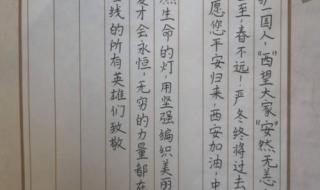 国人“西”望大家“安”然无恙
至,春不远,严冬终将过去
愿您平安归来,西安加油,中
然生命的灯,用坚强编织美丽
才会永恒,无穷的力量都在
线的所有英雄们致敬